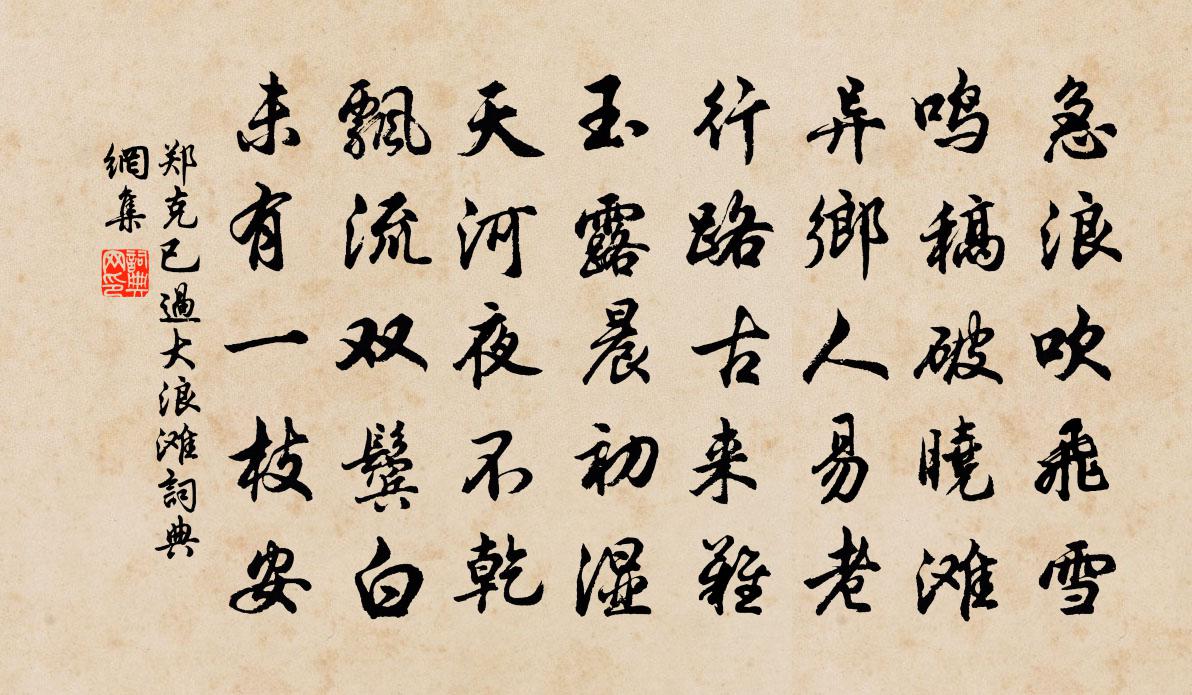 急浪吹飛雪
鸣稿破曉滩
异鄉人易老
行路古来難
玉露晨初湿
天河夜不乾
飄流双鬓白
未有一枝安
郑克已過大浪滩詞典
網集
詞典
网印